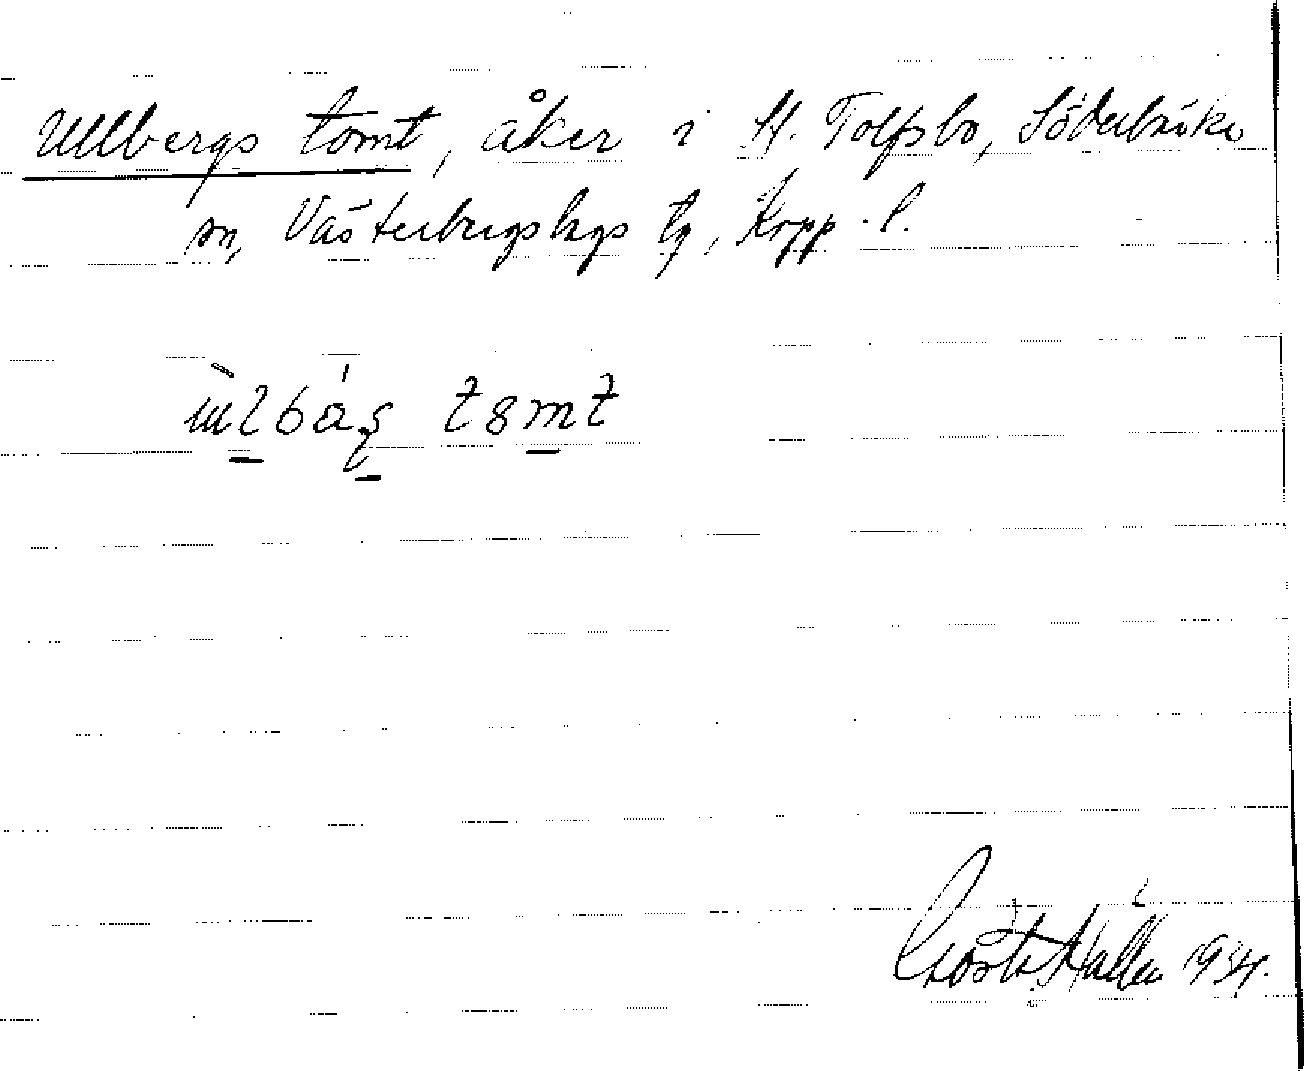 Ullbergs tomt, åker i St. Tolfsbo, Söderbärke
sn, Västerbergslags tg, Kopp. l.
tomt
Gösta Hallén 1934.